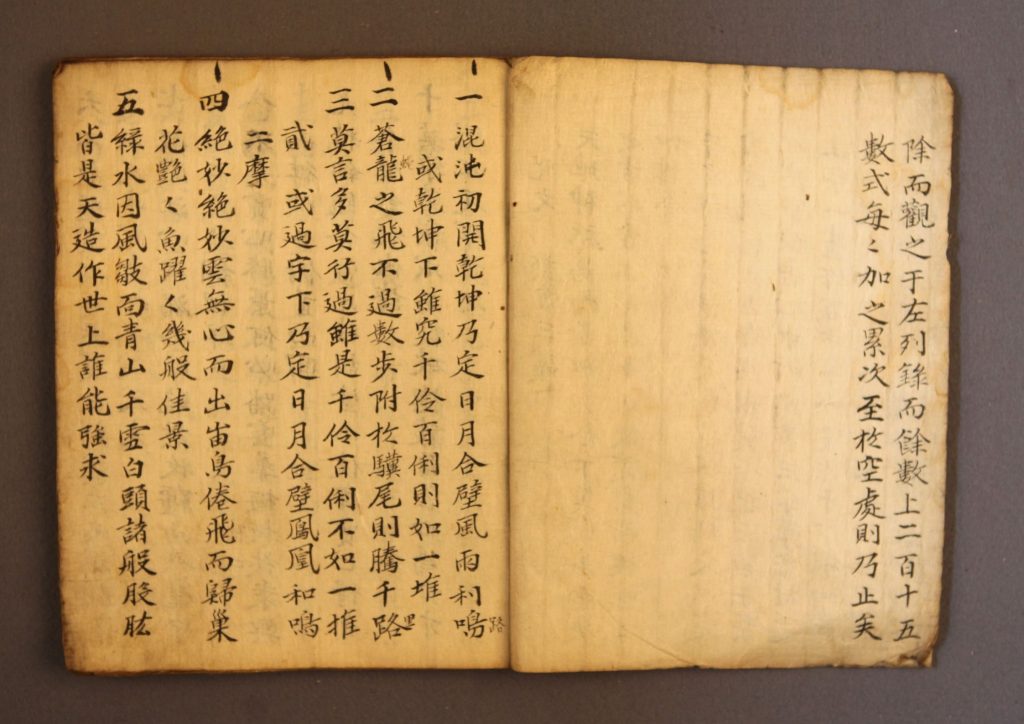 除而觀之于左列錄而餘數上二百十五
數式每〻加之累次至於空處則乃止矣
一 混沌初開乾坤乃定日月合壁風雨利鳴
或乾坤下雖究千伶百俐則如一堆
二 蒼龍之飛不過數步附於驥尾則騰千路
三 莫言多莫行過雖是千伶百俐不如一推
貳 或過宇下乃定日月合壁鳳凰和鳴
二摩
四 絶妙〻絶妙雲無心而出宙鳥倦飛而歸巢
花艶〻魚躍〻幾般佳景
五 緑水因風皺面青山千雪白頭諸般肢肱
皆是天造作世上誰能強求